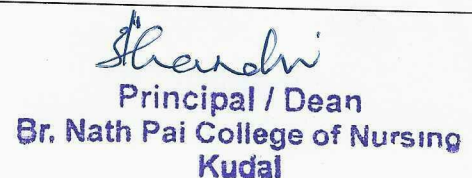 Principal / Dean
Br. Nath Pai College of Nursing
Kudal